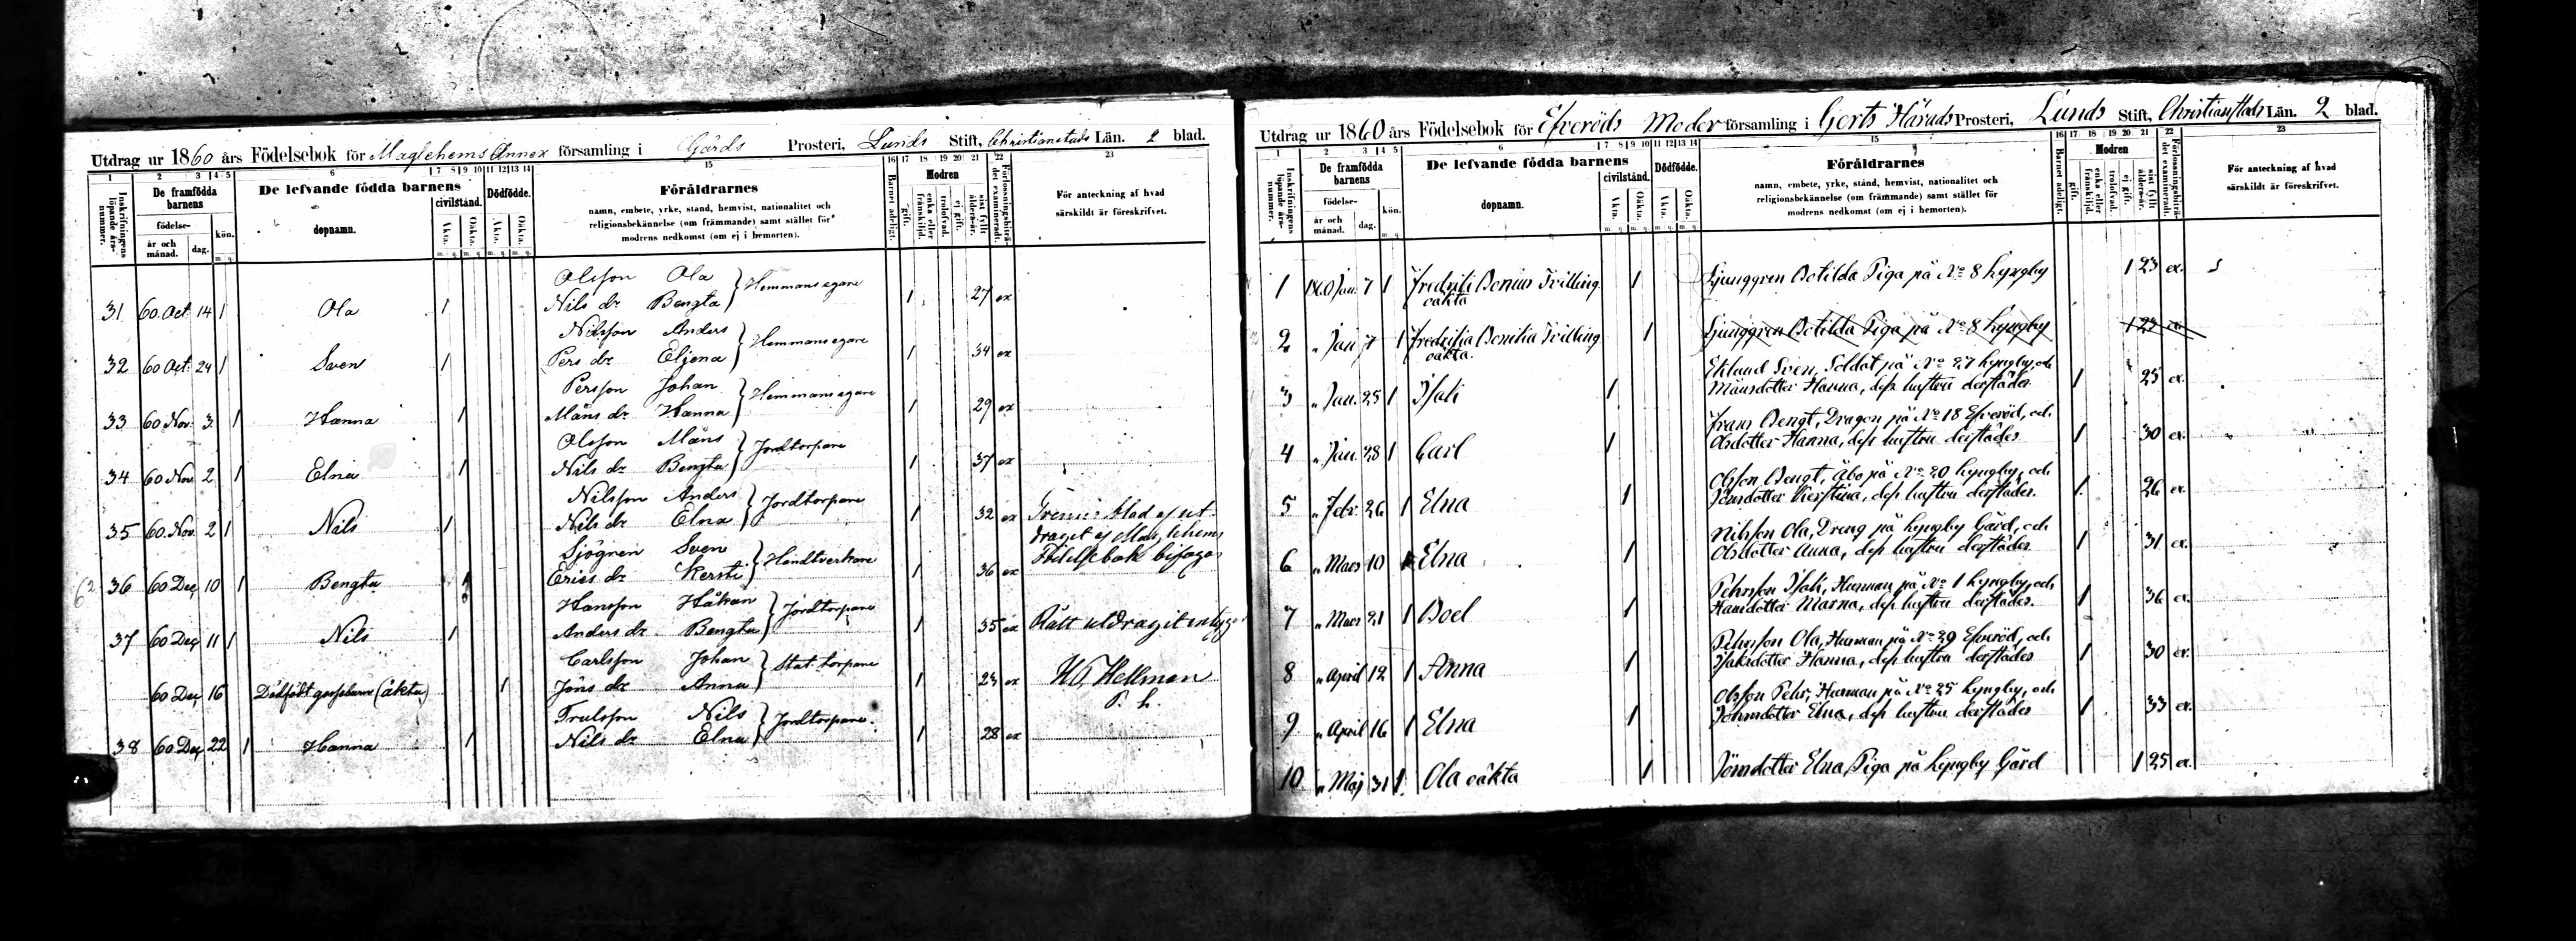 Utdrag ur 1860 års Födelsebok för Maglehems Annex församling i Gärds Prosteri, Lunds Stift, Christianstads Län. 2 blad.
1 2 3 4 5 6 7 8 9 10 11 12 13 14 15 16 17 18 19 20 21 22 23
Inskrifningens löpande års-nummer.
De framfödda barnens
födelse-
år och månad.
dag.
kön.
De lefvande födda barnens
dopnamn.
civilstånd.
Äkta.
Oäkta.
Dödfödde.
Äkta.
Oäkta.
Föräldrarnes
namn, embete, yrke, stånd, hemvist, nationalitet och
religionsbekännelse (om främmande) samt stället för
modrens nedkomst (om ej i hemorten).
Barnet adeligt.
Modren
gift.
enka eller frånskiljd.
trolofvad.
ej gift.
sist fyllt ålders-år.
Förlossningsbiträdet examineradt.
För anteckning af hvad
särskildt är föreskrifvet.
Olsson Ola } Hemmansegare
31 60. Oct 14 1 Ola 1 Nils dr Bengta 1 27 ex
Nilsson Anders } Hemmansegare
32 60 Oct. 24 1 Sven 1 Pers dr Eljena 1 34 ex
Persson Johan } Hemmansegare
33 60 Nov. 3 1 Hanna 1 Måns dr Hanna 1 29 ex
Olsson Måns } Jordtorpare
34 60 Nov 2 1 Elna 1 Nils dr Bengta 1 37 ex
Nilsson Anders } Jordtorpare
35 60. Nov. 2 1 Nils 1 Nils dr Elna 1 32 ex
Sjögren Sven } Handtverkare
36 60 Dec 10 1 Bengta 1 Erics dr Kersti 1 36 ex
Hansson Håkan } Jordtorpare
37 60 Dec 11 1 Nils 1 Anders dr Bengta 1 35 ex Rätt utdragit intygar
Carlsson Johan } Stat. torpare
60 Dec 16 Dödfödt gossebarn (äkta) 1 Jöns dr Anna 1 23 ex
P. h.
Trulsson Nils } Jordtorpare.
38 60 Dec 22 1 Hanna 1 Nils dr Elna 1 28 ex
Utdrag ur 1860 års Födelsebok för Efveröds Moder församling i Gerts Härads Prosteri, Lunds Stift, Christianstads Län. 2 blad.
1 2 3 4 5 6 7 8 9 10 11 12 13 14 15 16 17 18 19 20 21 22 23
Inskrifningens löpande års-nummer.
De framfödda barnens
födelse-
år och månad.
dag.
kön.
De lefvande födda barnens
dopnamn.
civilstånd.
Äkta.
Oäkta.
Dödfödde.
Äkta.
Oäkta.
Föräldrarnes
namn, embete, yrke, stånd, hemvist, nationalitet och
religionsbekännelse (om främmande) samt stället för
modrens nedkomst (om ej i hemorten).
Barnet adeligt.
Modren
gift.
enka eller frånskiljd.
trolofvad.
ej gift.
sist fyllt ålders-år.
Förlossningsbiträdet examineradt.
För anteckning af hvad
särskildt är föreskrifvet.
1 1860 Jan. 7 1 Tvilling 1 Ljunggren Botilda Piga på No 8 Lyngby 1 23 ex.
oäkta
2 " Jan 7 1 Tvilling 1 Ljunggren Botilda Piga på No 8 Lyngby 1 23 ex
oäkta.
Eklund Sven, Soldat på No 27 Lyngby, och
3 " Jan. 25 1 Isak 1 Månsdotter Hanna, dess hustru derstädes 1 25 ex.
Frans Bengt, Dragon på No 18 Efveröd, och
4 " Jan. 28 1 Carl 1 Olsdotter Hanna, dess hustru derstädes 1 30 ex.
Olsson Bengt, Åbo på No 20 Lyngby, och
5 " Febr. 26 1 Elna 1 Jönsdotter Kierstina, dess hustru derstädes. 1 26 ex.
Nilsson Ola, Dreng på Lyngby Gård, och
6 " Mars 10 1 Elna 1 Olsdotter Anna, dess hustru derstädes 1 31 ex.
Pehrsson Isak, Husman på No 1 Lyngby, och
7 " Mars 21 1 Boel 1 Hansdotter Marna, dess hustru derstädes. 1 36 ex.
Pehrsson Ola, Husman på No 29 Efveröd, och
8 " April 12 1 Anna 1 Isaksdotter Hanna, dess hustru derstädes 1 30 ex.
Olsson Pehr, Husman på No 25 Lyngby, och
9 " April 16 1 Elna 1 Johnsdotter Elna, dess hustru derstädes 1 33 ex.
10. " Maj 31 1 Ola oäkta 1 Jönsdotter Elna, Piga på Lyngby Gård 1 25 ex.